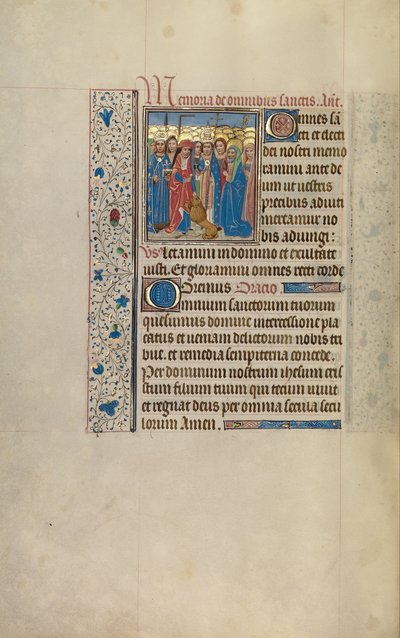 Memoria de omnibus sanctis. Ant.
Omnes sā
cti et electi
dei nostri memo
ramini ante de
um ut vestris
precibus adiuti
mereamur no
bis adiungi:
Vs Letamini in domino et exultate
iusti. Et gloriamini omnes recti corde
Oremus Oracio
Omnium sanctorum tuorum
quesumus domine intercessione pla
catus et veniam delictorum nobis tri
bue. et remedia sempiterna concede.
Per dominum nostrum ihesum cris
tum filium tuum qui tecum vivit
et regnat deus per omnia secula secu
lorum Amen.